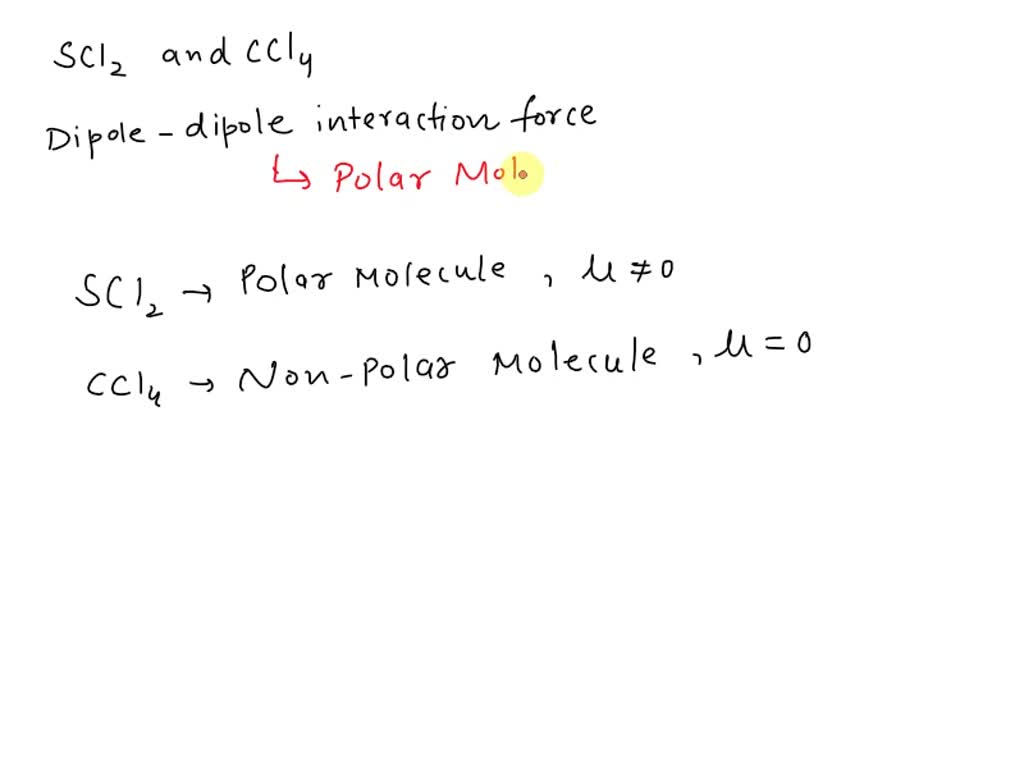 SCl₂ and CCl₄
Dipole - dipole interaction force
↳ Polar Mol
SCl₂ → Polar Molecule , μ ≠ 0
CCl₄ → Non-Polar Molecule , μ = 0